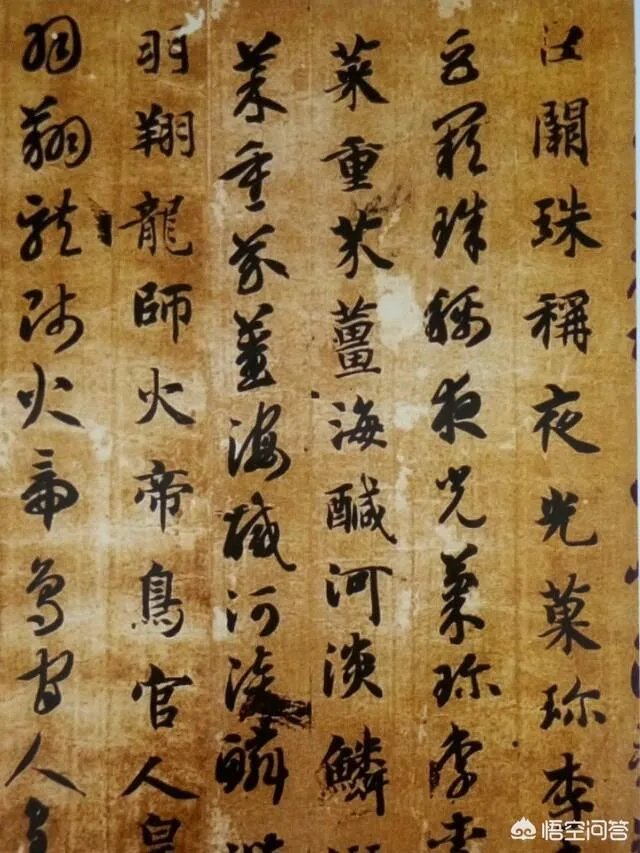 巨闕珠稱夜光菓珍李
巨闕珠稱夜光菓珍李柰
菜重芥薑海醎河淡鱗
菜重芥薑海醎河淡鱗
羽翔龍師火帝鳥官人皇
羽翔龍師火帝鳥官人皇
悟空问答